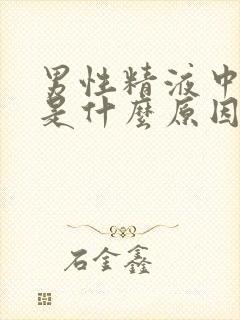 男性精液中
是什麼原因
石金鑫